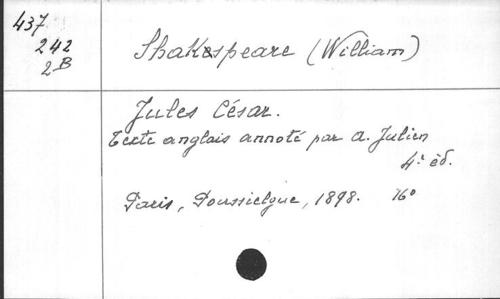 437
242
2B
Shakespeare (William)
Jules César.
Texte anglais annoté par A. Julien
4e éd.
Paris, Poussielgue, 1898. 16o